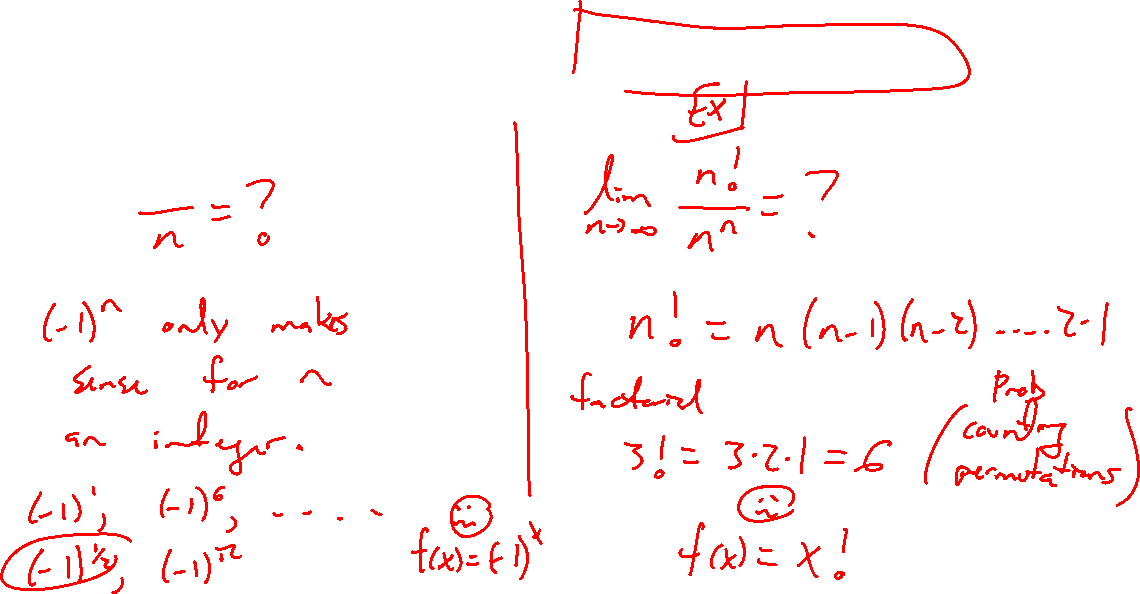 — / n = ?
(-1)^n only makes
sense for n
an integer.
(-1)^1, (-1)^6, ....
(-1)^{1/2}, (-1)^{√2}
f(x) = (-1)^x
Ex
lim n→∞ n!/n^n = ?
n! = n(n-1)(n-2)....2·1
factorial
3! = 3·2·1 = 6
(Prob
counting
permutations)
f(x) = x!